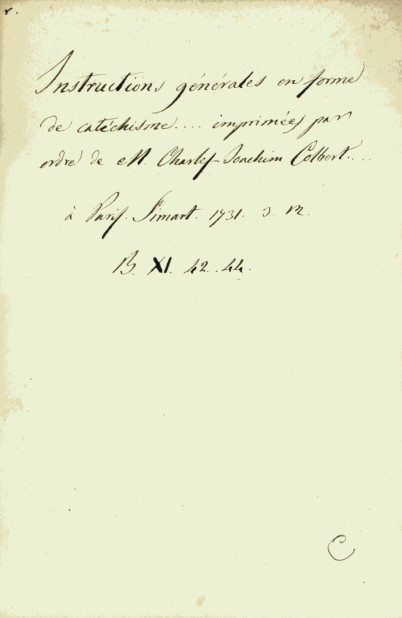 Instructions générales en forme
de catéchisme.... imprimées par
ordre de M. Charles-Joachim Colbert....
à Paris. Simart. 1731. 3. 12.
B. XI. 42.44.
C